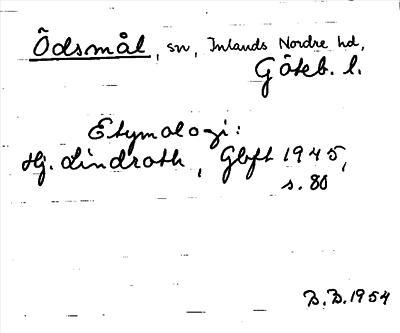 Ödsmål, sn, Inlands Nordre hd,
Göteb. l.
Etymologi:
Hj. Lindroth, Gbft 1945,
s. 80
B.B. 1954